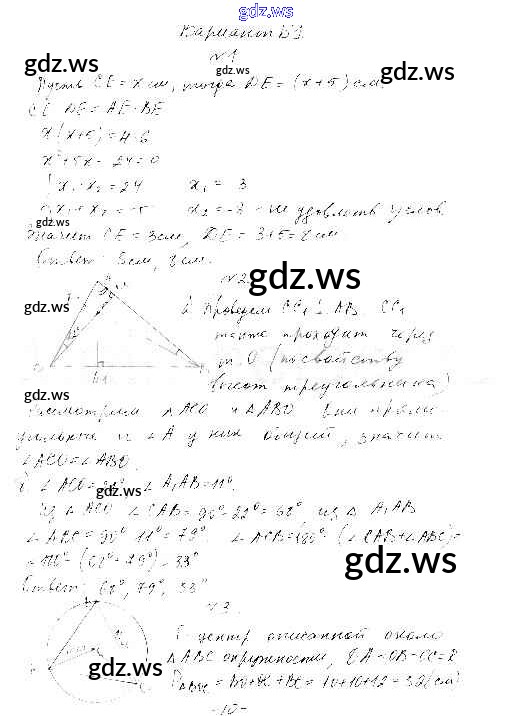 gdz.ws
Вариант Б1
№1
gdz.ws
Пусть CE = x см, тогда DE = (x+5) см
gdz.ws
CE · DE = AE · BE
x(x+5) = 4·6
x² + 5x - 24 = 0
x₁ · x₂ = 24 x₁ = 3
x₁ + x₂ = -5 x₂ = -8 - не удовлеть услов.
gdz.ws
Значит CE = 3см, DE = 3+5 = 8см
Ответ: 3см, 8см.
№2
gdz.ws
Проведем CC₁ ⊥ AB. CC₁
gdz.ws
также проходит через
т. O (по свойству
высот треугольника)
gdz.ws
Рассмотрим △ACO и △ABO Они прямо-
угольные и ∠A у них общий, значит
∠ACO = ∠ABO.
∠ACO = ∠A₁AB = 11°.
gdz.ws
Из △ACO ∠CAB = 90° - 22° = 68° из △A₁AB
∠ABC = 90° - 11° = 79° ∠ACB = 180° - (∠CAB + ∠ABC) =
= 180° - (68° + 79°) = 33°
gdz.ws
Ответ: 68°, 79°, 33°
№3
центр описанной около
gdz.ws
△ABC окружности, OA = OB = OC = R
= 10+10+12 = 32(см)
- 10 -